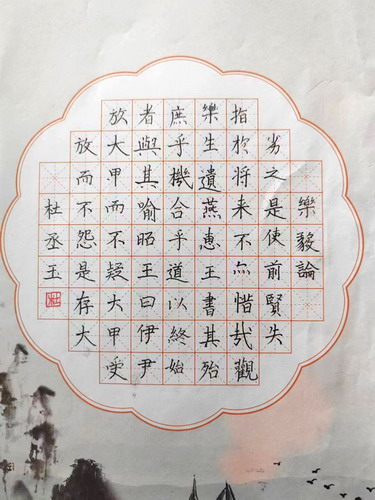 樂毅論
劣之是使前賢失
指於将来不亦惜哉觀
樂生遺燕惠王書其殆
庶乎機合乎道以終始
者與其喻昭王曰伊尹
放大甲而不疑大甲受
放而不怨是存大
杜丞玉